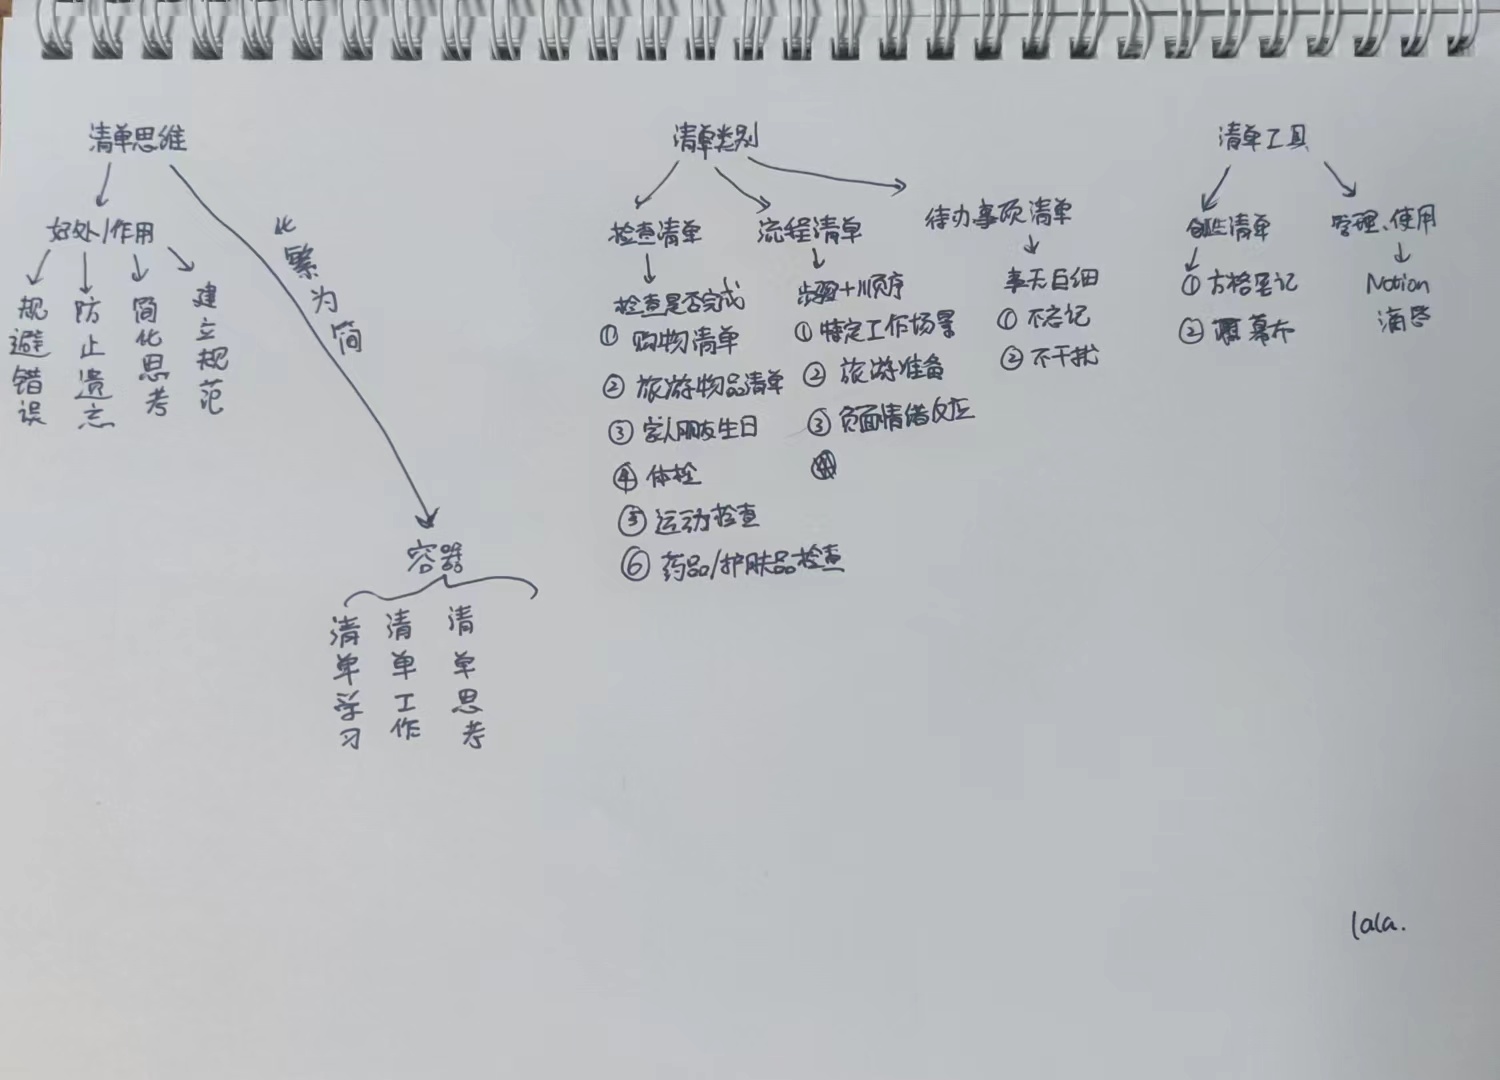 清单思维
好处/作用
规避错误
防止遗忘
简化思考
建立规范
化繁为简
容器
清单学习
清单工作
清单思考
清单类别
检查清单
检查是否完成
① 购物清单
② 旅游物品清单
③ 家人朋友生日
④ 体检
⑤ 运动检查
⑥ 药品/护肤品检查
流程清单
步骤+顺序
① 特定工作场景
② 旅游准备
③ 负面情绪反应
待办事项清单
事无巨细
① 不忘记
② 不干扰
清单工具
创造清单
① 方格笔记
② 幕布
管理、使用
Notion
滴答
lala.